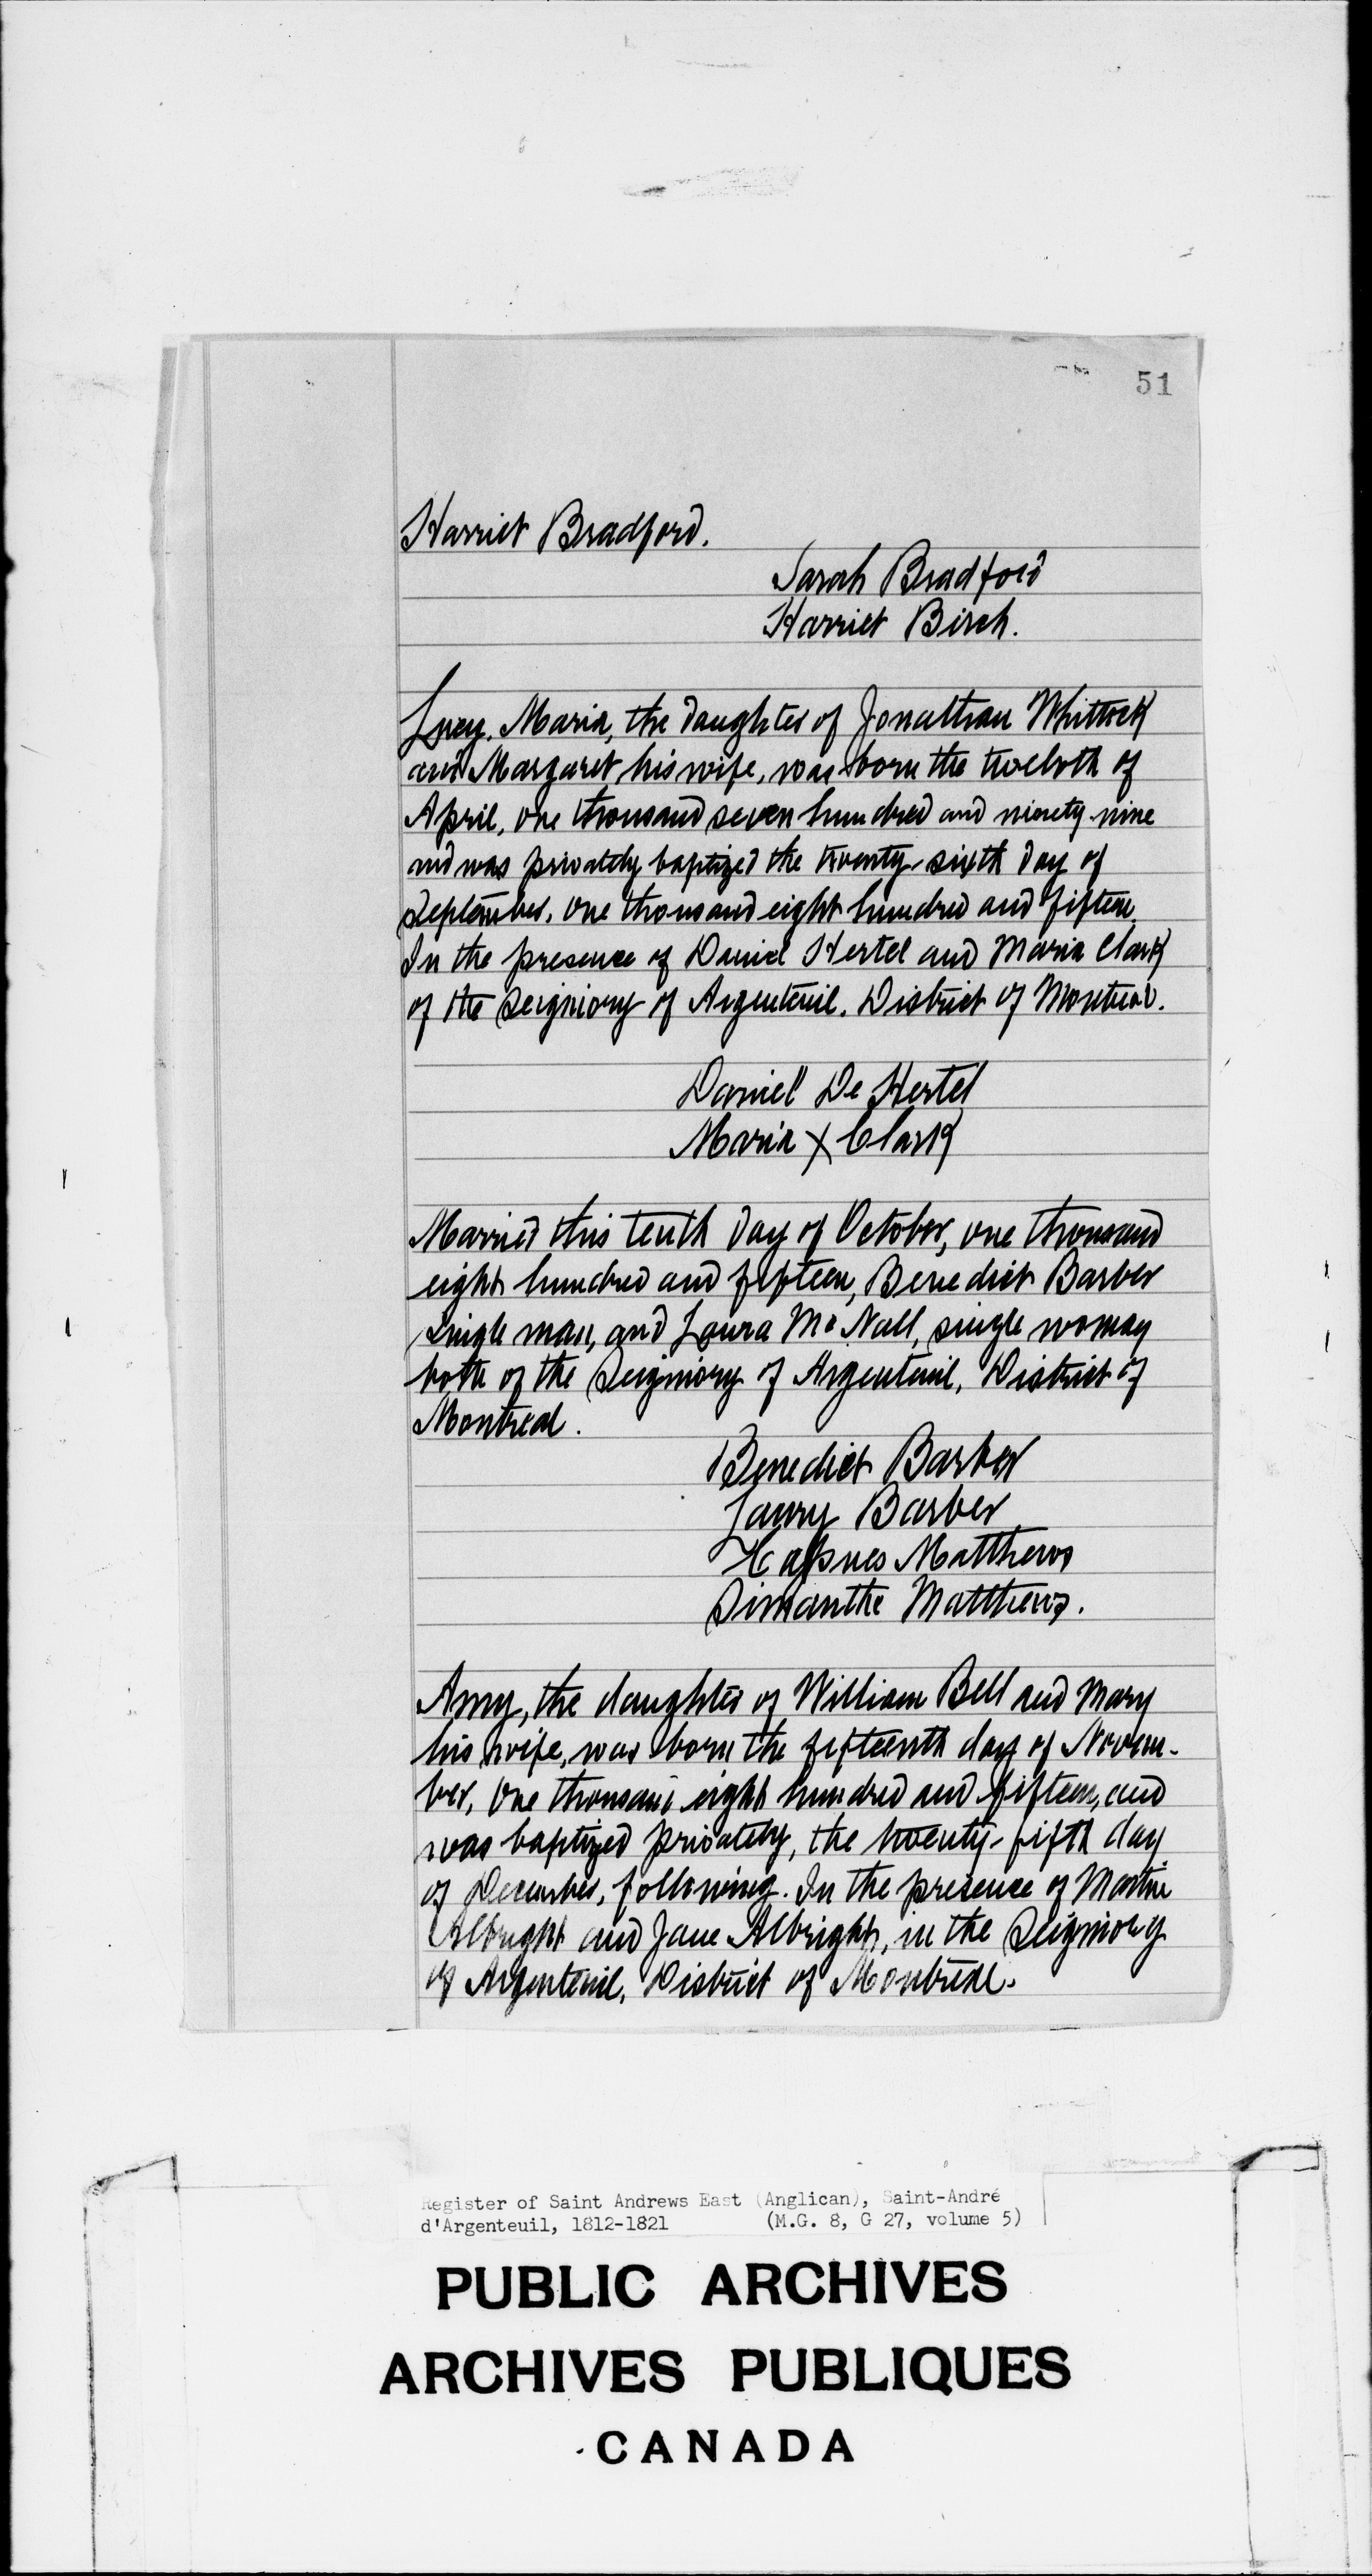 51
Harriet Bradford.
Sarah Bradford
Harriet Birch.
Lucy. Maria, the daughter of Jonathan Whittock
and Margaret his wife, was born the twelvth of
April, one thousand seven hundred and ninety-nine
and was privately baptized the twenty-sixth day of
September, one thousand eight hundred and fifteen.
In the presence of Daniel Hertel and Maria Clark
of the Seigniory of Argenteuil. District of Montreal.
Daniel De Hertel
Maria X Clark
Married this tenth day of October, one thousand
eight hundred and fifteen, Benedict Barber
single man, and Laura McNall, single woman
both of the Seigniory of Argenteuil, District of
Montreal.
Benedict Barber
Laury Barber
Matthews
Simanthe Matthews.
Amy, the daughter of William Bell and Mary
his wife, was born the fifteenth day of Novem-
ber, one thousand eight hundred and fifteen, and
was baptized privately, the twenty-fifth day
of December, following. In the presence of Martin
Albright and Jane Albright, in the Seigniory
of Argenteuil, District of Montreal.
Register of Saint Andrews East (Anglican), Saint-André
d'Argenteuil, 1812-1821 (M.G. 8, G 27, volume 5)
PUBLIC ARCHIVES
ARCHIVES PUBLIQUES
CANADA